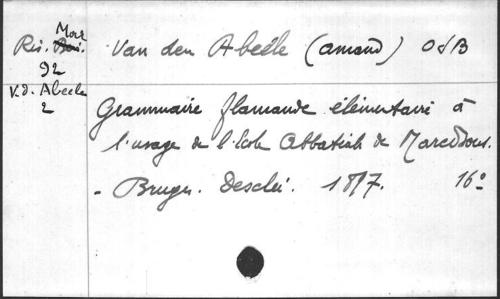 Mar
Ris.
92
V.d. Abeele
2
Van den Abeele (Amand) OSB
Grammaire flamande élémentaire à
l'usage de l'Ecole Abbatiale de Maredsous.
- Bruges. Desclée. 1877. 16°